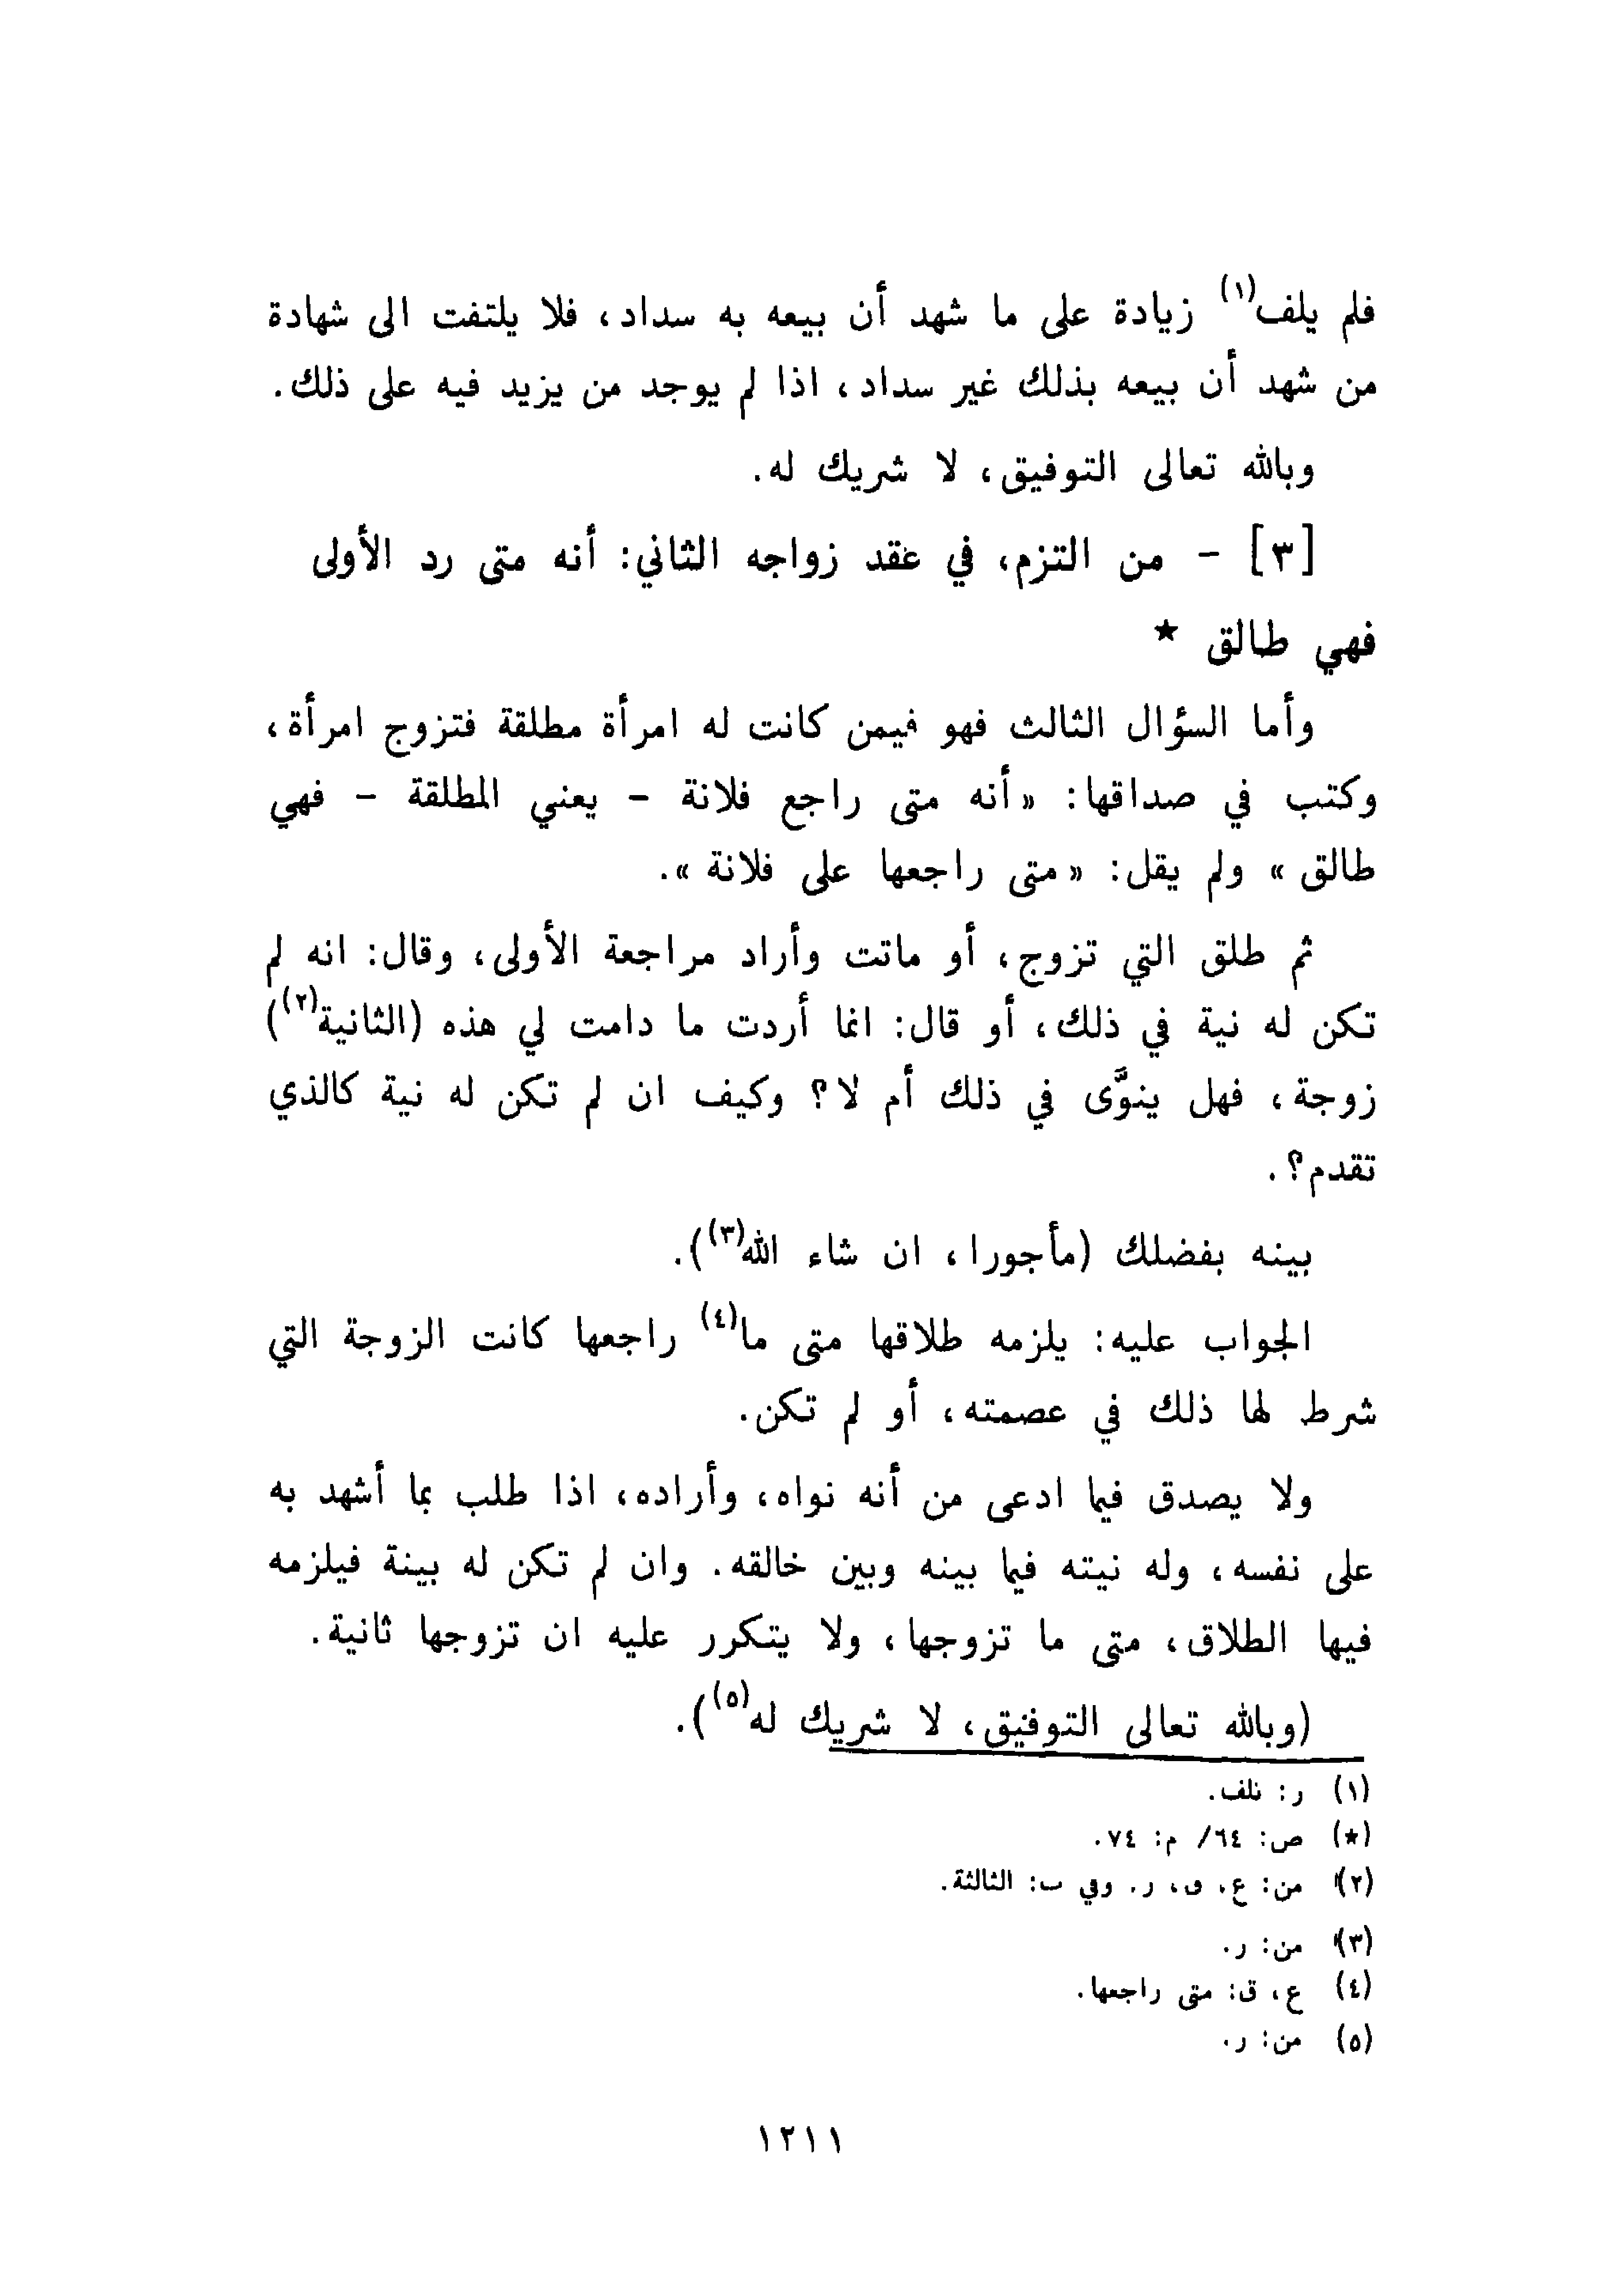 فلم يلف(١) زيادة على ما شهد أن بيعه به سداد، فلا يلتفت الى شهادة
من شهد أن بيعه بذلك غير سداد، اذا لم يوجد من يزيد فيه على ذلك.
وبالله تعالى التوفيق، لا شريك له.
[٣] - من التزم، في عقد زواجه الثاني: أنه متى رد الأولى
فهي طالق ★
وأما السؤال الثالث فهو فيمن كانت له امرأة مطلقة فتزوج امرأة،
وكتب في صداقها: «أنه متى راجع فلانة - يعني المطلقة - فهي
طالق» ولم يقل: «متى راجعها على فلانة».
ثم طلق التي تزوج، أو ماتت وأراد مراجعة الأولى، وقال: انه لم
تكن له نية في ذلك، أو قال: انما أردت ما دامت لي هذه (الثانية(٢))
زوجة، فهل ينوَّى في ذلك أم لا؟ وكيف ان لم تكن له نية كالذي
تقدم؟.
بينه بفضلك (مأجورا، ان شاء الله(٣)).
الجواب عليه: يلزمه طلاقها متى ما(٤) راجعها كانت الزوجة التي
شرط لها ذلك في عصمته، أو لم تكن.
ولا يصدق فيما ادعى من أنه نواه، وأراده، اذا طلب بما أشهد به
على نفسه، وله نيته فيما بينه وبين خالقه. وان لم تكن له بينة فيلزمه
فيها الطلاق، متى ما تزوجها، ولا يتكرر عليه ان تزوجها ثانية.
(وبالله تعالى التوفيق، لا شريك له(٥)).
(١) ر: نلف.
(★) ص: ٦٤/ م: ٧٤.
(٢) من: ع، ق، ر. وفي ب: الثالثة.
(٣) من: ر.
(٤) ع، ق: متى راجعها.
(٥) من: ر.
١٢١١